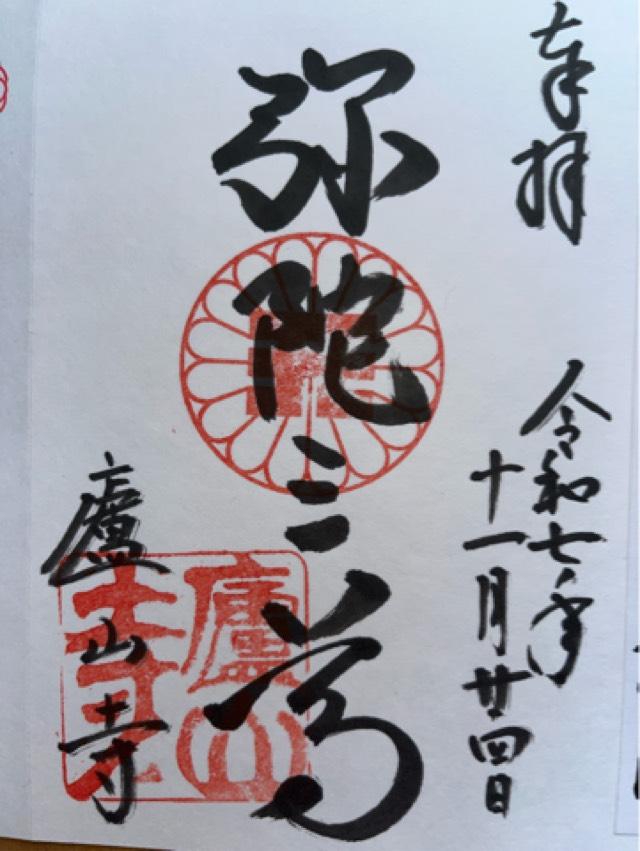 奉拝
令和七年
十一月廿四日
弥陀三尊
廬山寺
廬山寺